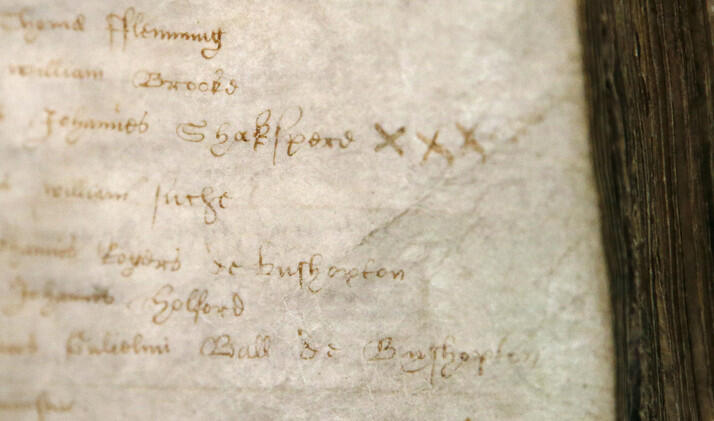 Thome Fflemming
William Brooke
Johannes Shakspere XXX
William Suche
Rogers de Busshopton
Johannis Holford
Gulielmi Ball de Bysshopton